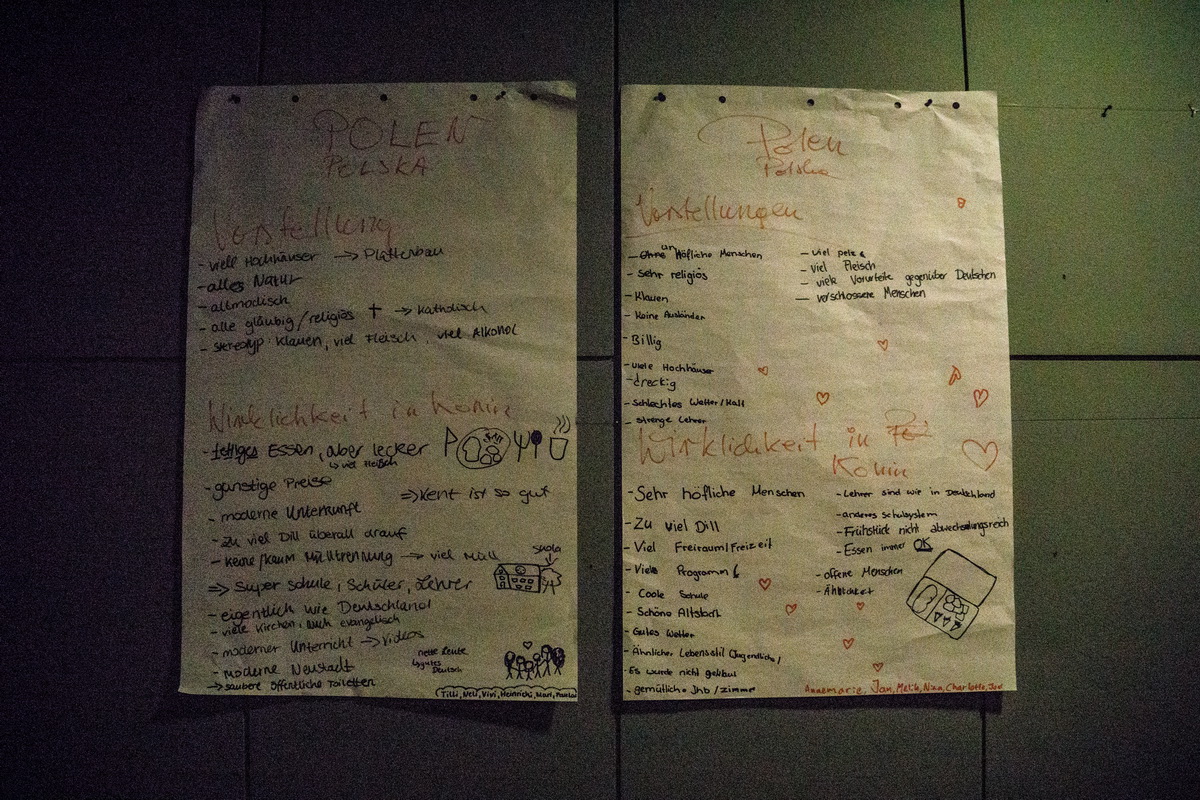 POLEN
POLSKA
Vorstellung
- viell Hochhäuser → Plattenbau
- alles Natur
- altmodisch
- alle gläubig/religiös → Katholisch
- stereotyp: Klauen, viel Fleisch, viel Alkohol
Wirklichkeit in Konin
- fettiges Essen, aber lecker
↳ viel Fleisch
- günstige Preise
⇒ Kent ist so gut
- moderne Unterkunft
- zu viel Dill überall drauf
- keine/kaum Mülltrennung → viel Müll
⇒ Super Schule, Schüler, Lehrer
- eigentlich wie Deutschland
- viele Kirchen, auch evangelisch
- moderner Unterricht → Videos
- moderne Neustadt
→ saubere öffentliche Toiletten
nette Leute
↳ gutes Deutsch
Polen
Polska
Vorstellungen
- Ohne un Höfliche Menschen
- Sehr religiös
- Klauen
- Keine Ausländer
- Billig
- viele Hochhäuser
- dreckig
- Schlechtes Wetter/Kalt
- strenge Lehrer
- viel pelze
- viel Fleisch
- viele Vorurteile gegenüber Deutschen
- verschlossene Menschen
Wirklichkeit in
Konin
- Sehr höfliche Menschen
- Zu viel Dill
- Viel Freiraum/Freizeit
- Viele Programm
- Coole Schule
- Schöne Altstadt
- Gutes Wetter
- Ähnlicher Lebensstil (Jugendliche)
- Es wurde nicht geklaut
- gemütliche Jhb/zimmer
- Lehrer sind wie in Deutschland
- anderes Schulsystem
- Frühstück nicht abwechslungsreich
- Essen immer OK
- offene Menschen
- Ähnlichkeit
Annemarie, Jan, Nina, Charlotte,